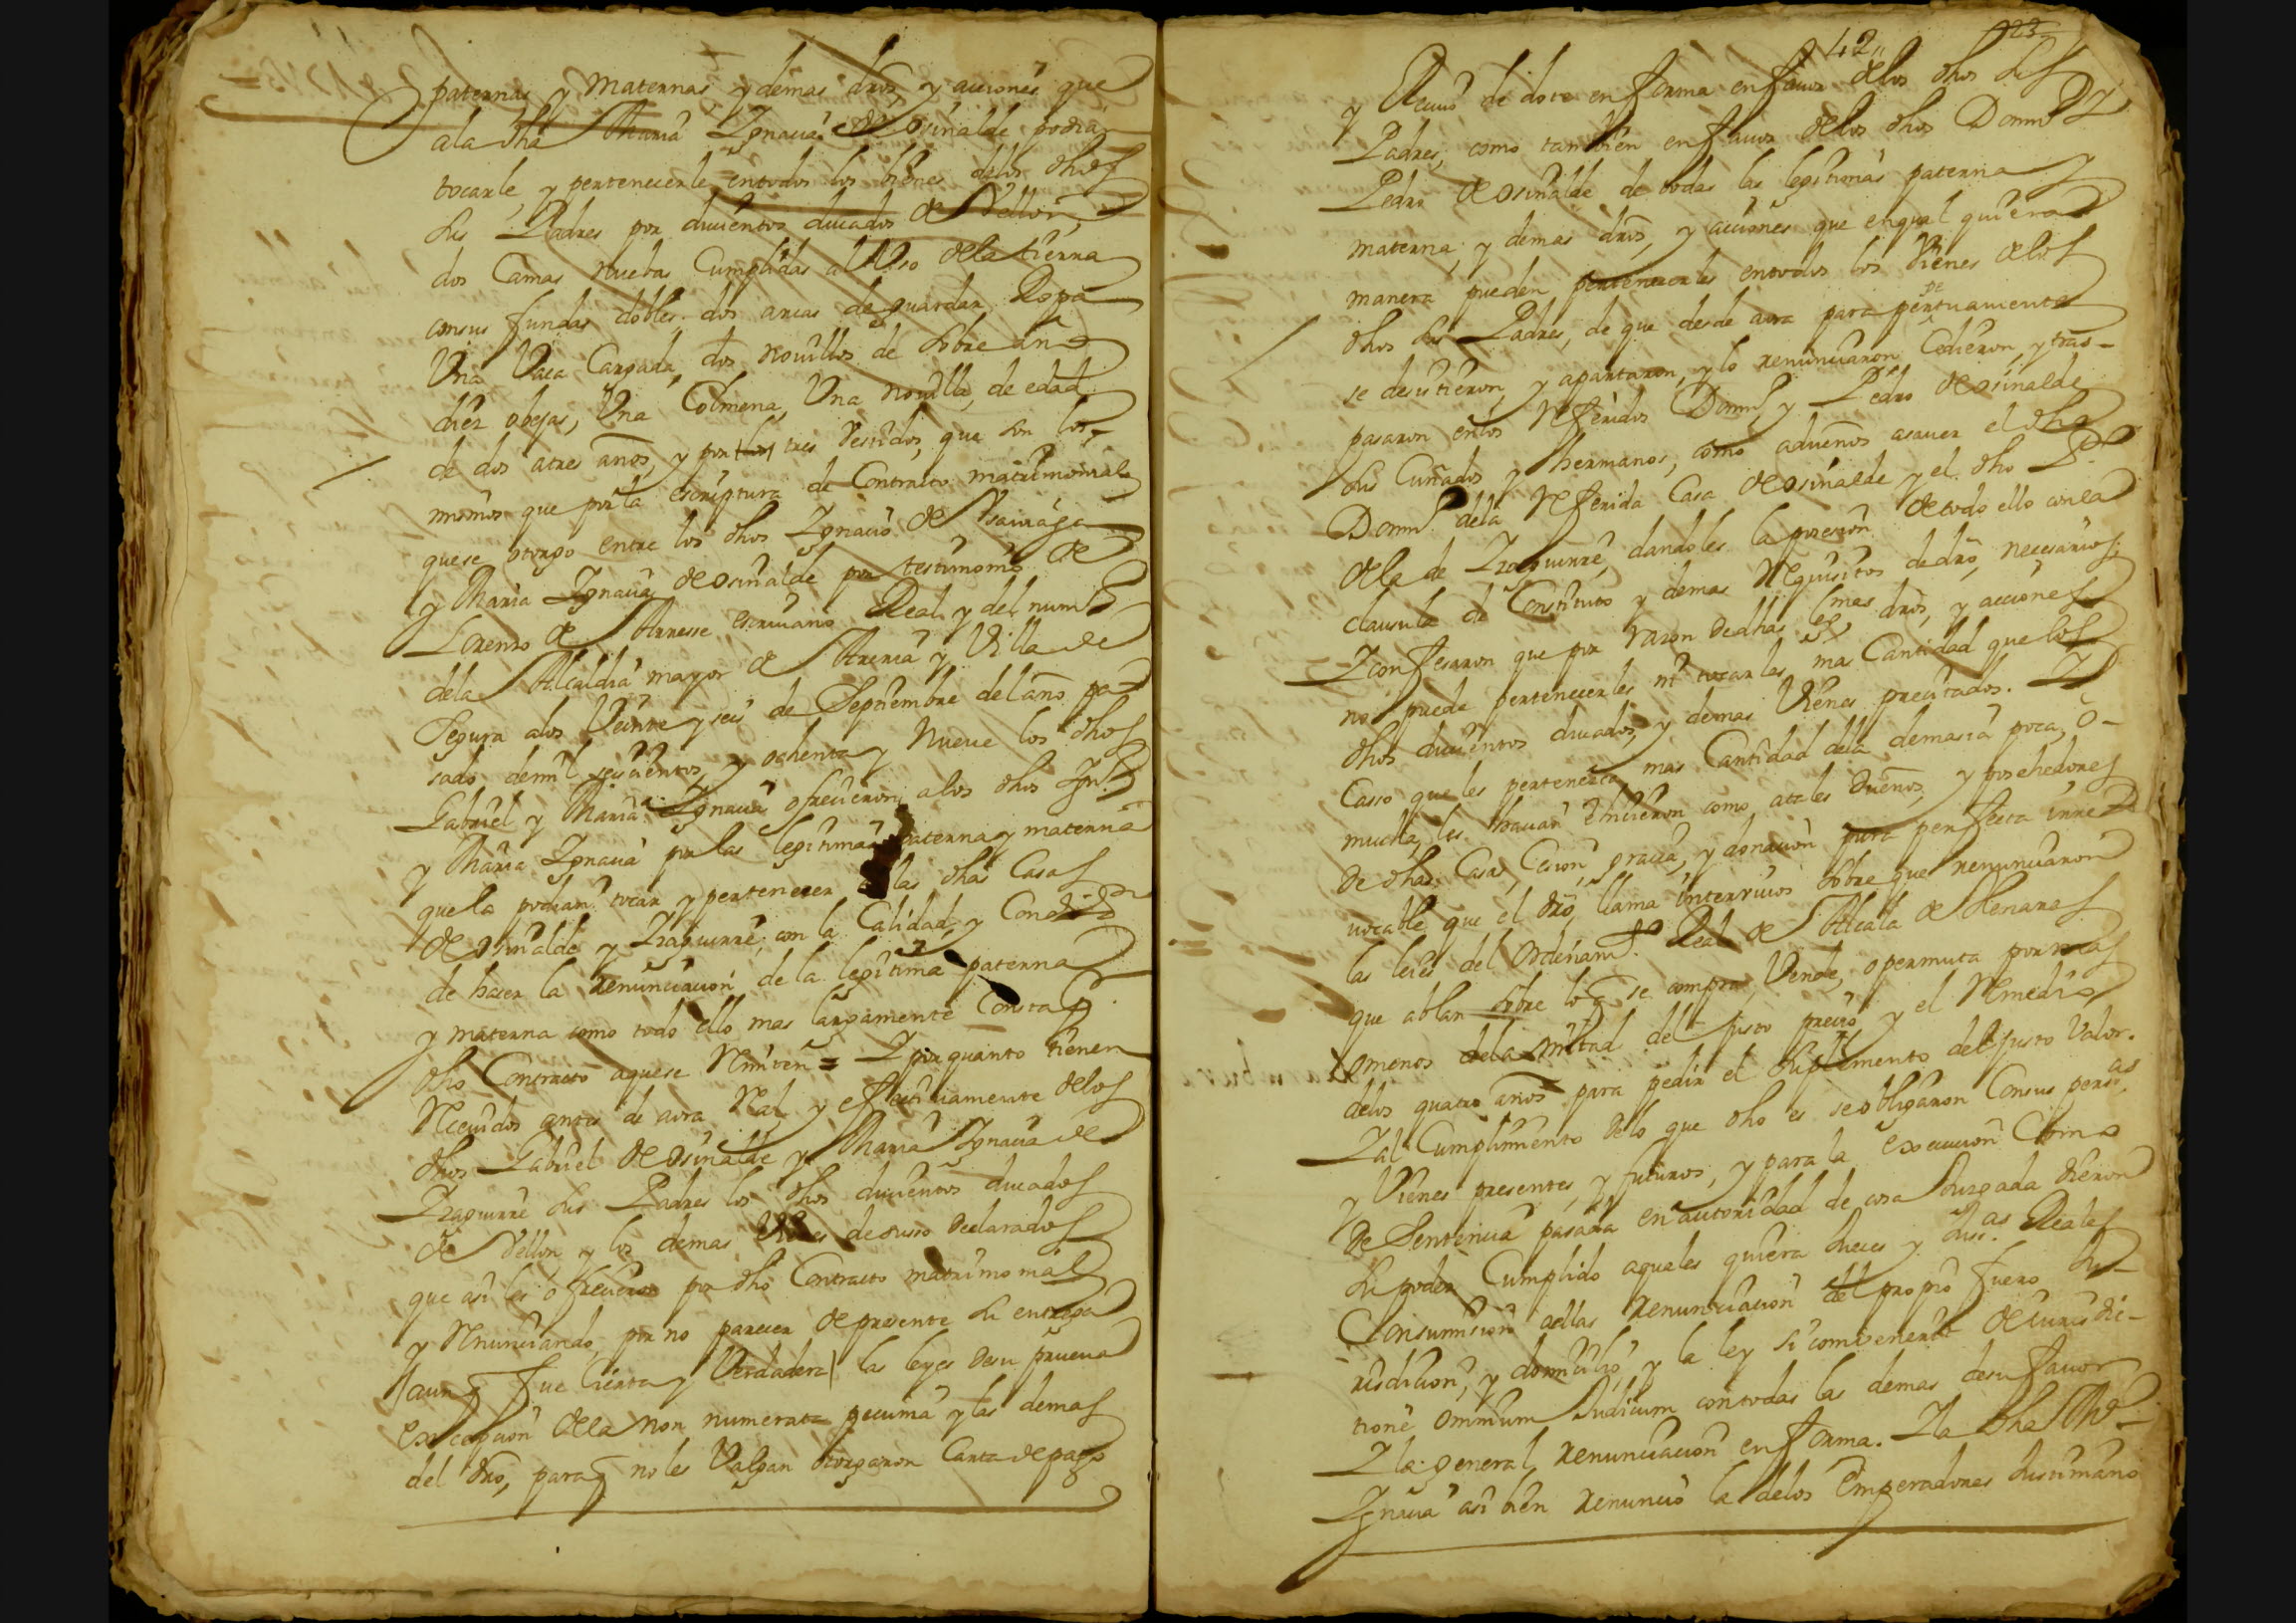 paternas y maternas y demas dros, y acciones que
ala dha Maria Ignacia de Osinalde podia
tocarle, y pertenecerle en todos los bienes delos dhos
sus Padres por ducientos ducados de Vellon,
dos Camas nuebas Cumplidas al Uso dela tierra
con sus fundas dobles, dos arcas de guardar Ropa
Una Vaca Cargada, dos novillos de sobre año
diez obejas, Una Colmena, Una novilla, de edad
de dos atres años, y por los tres Vestidos, que son los
mismos que por la escriptura de Contrato matrimonial
que se otorgo entre los dhos Ignacio de
y Maria Ignacia de Osinalde por testimonio de
Lorenzo de escriuano Real y del num.
dela Alcaldia mayor de Areria y Villa de
Segura alos Veinte y seis de Septiembre del año pa
sado de mil seiscientos y ochenta y Nueue los dhos
Gabriel y Maria Ignacia ofrecieron alos dhos Ign.
y Maria Ignacia por las legitimas paterna y materna
que la podian tocar y pertenecer a las dhas Casas
de Osinalde y Yzaguirre, con la Calidad y Condizon
de hacer la renunciacion de la legitima paterna
y materna como todo ello mas largamente Consta
dho Contracto aque se Remiten = Y por quanto tienen
Receuidos antes de aora Real y efectiuamente delos
dhos Gabriel de Osinalde y Maria Ignacia de
Yzaguirre sus Padres los dhos ducientos ducados
de Vellon y los demas Vienes de suso declarados
que asi les ofrecieron por dho Contracto matrimonial
y Renunciando, por no parecer de presente su entrega
(aunq fue Cierta y Verdadera) las leyes desu prueua
excepcion dela non numerata pecunia y las demas
del dro, para q no les Valgan otorgaron Carta de pago
42
123
y Reciuo de dote en forma en fauor delos dhos sus
Padres, como tambien en fauor delos dhos Domin.º y
Pedro de Osinalde de todas las legitimas paterna y
materna, y demas dros, y acciones que en qual quiera
manera pueden pertenecerles en todos los Vienes delos
dhos sus Padres, de que desde aora para perpetuamente
se desistieron, y apartaron, y lo renunciaron Cedieron, y tras-
pasaron en los Referidos Domin.º y Pedro de Osinalde
sus Cuñados y hermanos, como adueños asauer el dho
Domin.º dela Referida Casa de Osinalde y el dho P.º
dela de Yzaguirre, dandoles la posesion de todo ello con la
clausula de Constituto y demas Requisitos de dro, necesarios,
Y confesaron que por razon de dhas legmas dros, y acciones
no puede pertenecerles ni tocarles mas Cantidad que los
dhos ducientos ducados, y demas Vienes precitados. Y
Casso que les pertenezca mas Cantidad dela demasia poca, o
mucha, les hacian e hicieron como atales Dueños, y posehedores
de dhas Casas, Cesion, gracia, y donacion pura perfecta irre
vocable que el dro, llama inter viuos sobre que renunciaron
las leies del Ordenam.to Real de Alcala de Henares
que ablan sobre lo q se compra, Vende, o permuta por mas
omenos dela mitad del justo precio y el Remedio
delos quatro años para pedir el suplimento del justo Valor.
Y al Cumplimiento de lo que dho es se obligaron Con sus persas
y Vienes presentes, y futuros, y para la execucion Como
de Sentencia pasada en autoridad de cosa Juzgada dieron
su poder Cumplido aquales quiera Jueces y Jusas Reales
Con sumision aellas renunciacion del propio fuero Ju
risdicion, y domicilio, y la ley si combenerit de jurisdic-
tione Omnium Judicum con todas las demas desu fauor
Y la general renunciacion en forma. Y la dha Ma
Ignacia asi bien renuncio la delos Emperadores Justiniano